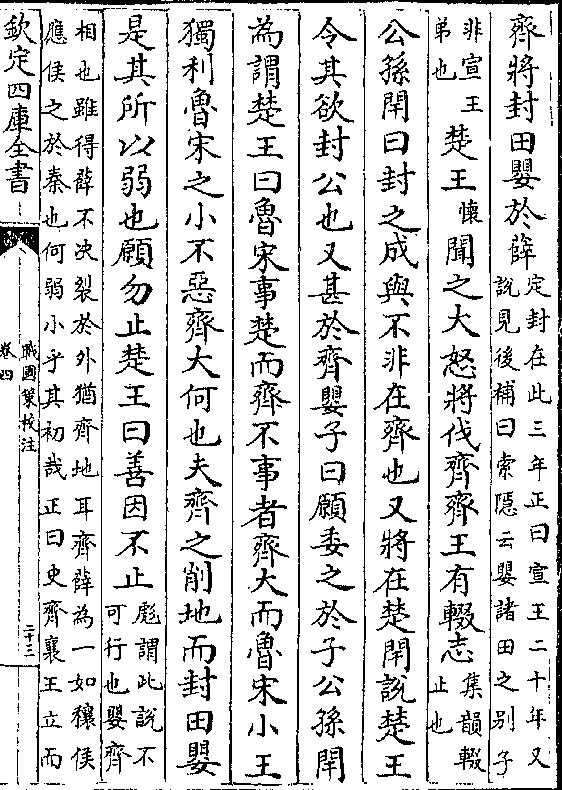 齊將封田嬰於薛定封在此三年正曰宣王二十年又
說見後補曰索隱云嬰諸田之别子
非宣王
弟也楚王懷聞之大怒將伐齊齊王有輟志集韻輟
止也
公孫閈曰封之成與不非在齊也又將在楚閈說楚王
令其欲封公也又甚於齊嬰子曰願委之於子公孫閈
為謂楚王曰魯宋事楚而齊不事者齊大而魯宋小王
獨利魯宋之小不惡齊大何也夫齊之削地而封田嬰
是其所以弱也願勿止楚王曰善因不止彪謂此說不
可行也嬰齊
相也雖得薛不决裂於外猶齊地耳齊薛為一如穰侯
應侯之於秦也何弱小乎其初哉正曰史齊襄王立而
欽定四庫全書
戰國策校注
卷四
二十三